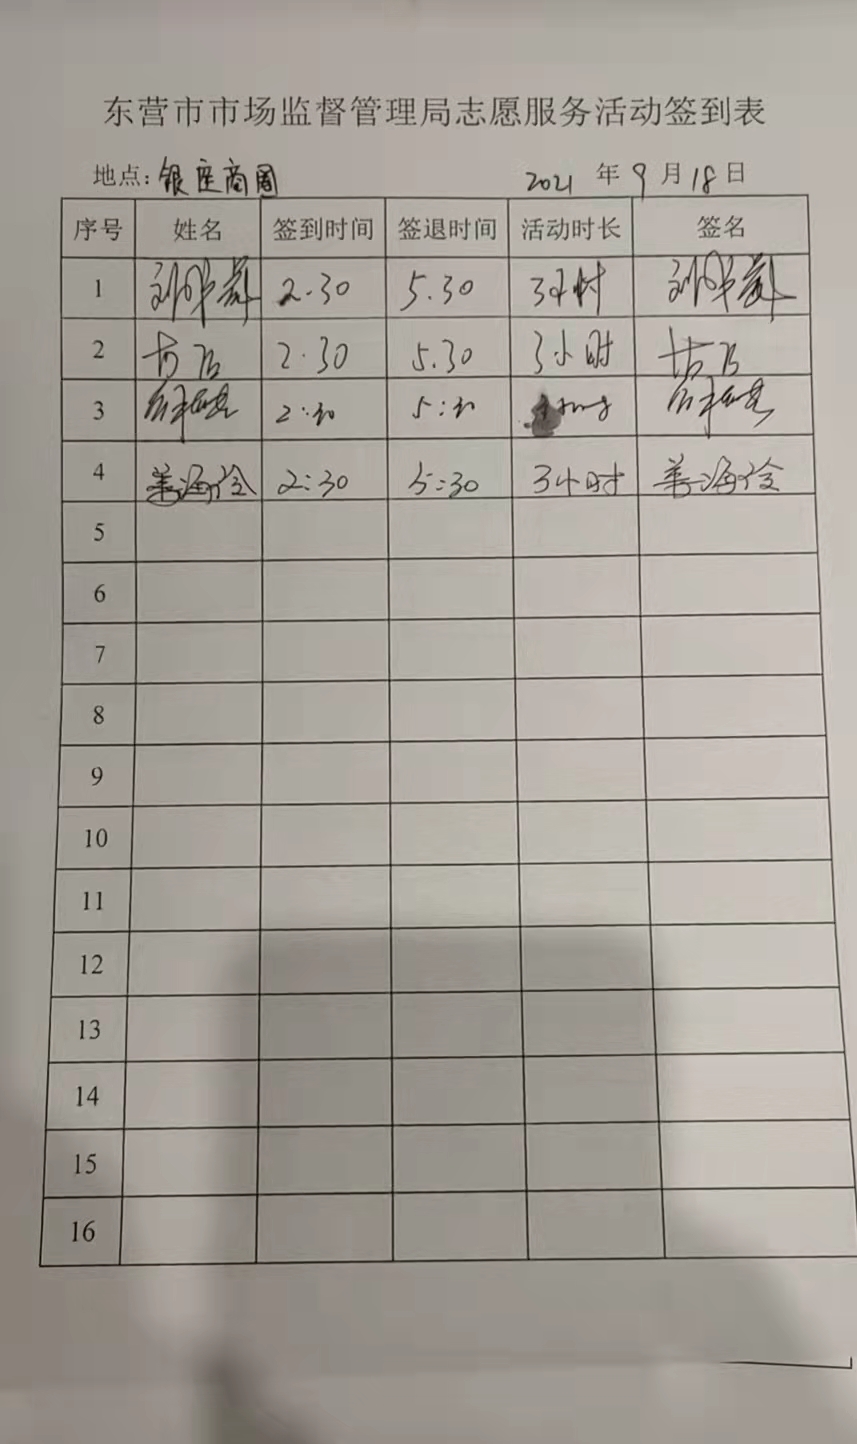 东营市市场监督管理局志愿服务活动签到表
地点:银座商圈 2021年9月18日
序号 姓名 签到时间 签退时间 活动时长 签名
1 2.30 5.30 3小时
2 2.30 5.30 3小时
3 2:30 5:30
4 2:30 5:30 3小时
5
6
7
8
9
10
11
12
13
14
15
16